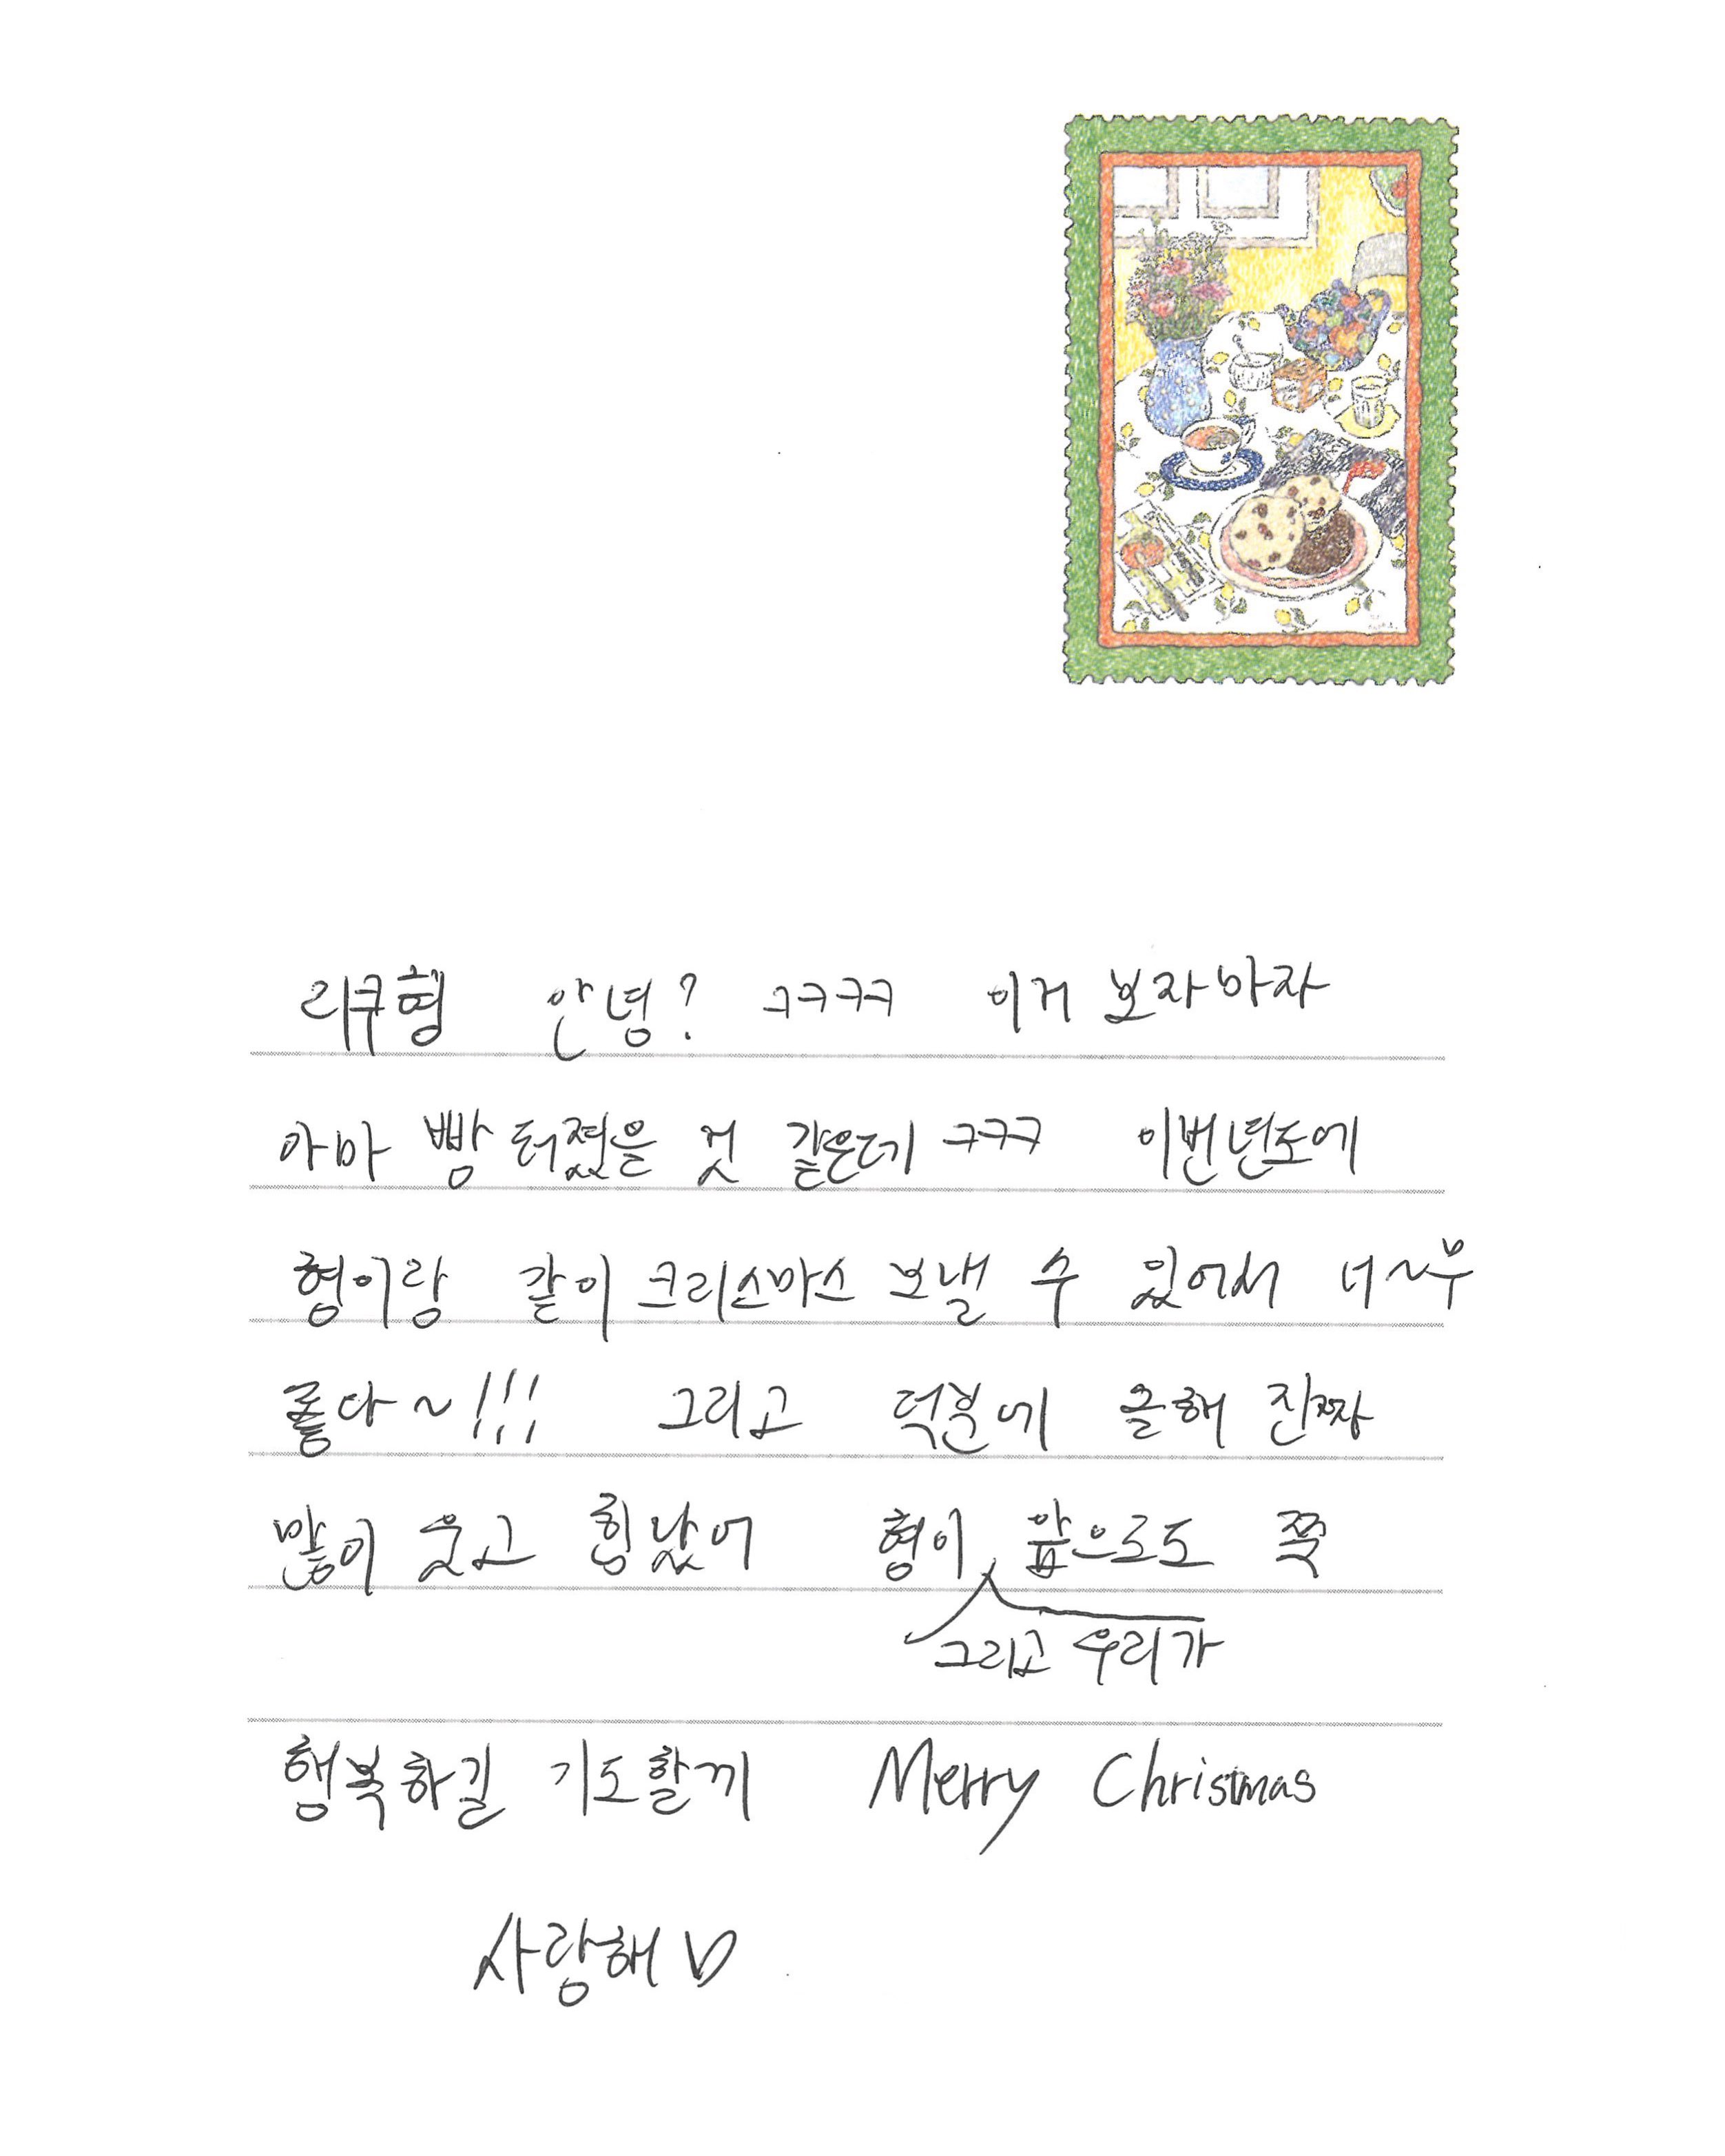 리쿠형 안녕? ㅋㅋㅋㅋ 이거 보자마자
아마 빵 터졌을 것 같은데 ㅋㅋㅋ 이번년도에
형이랑 같이 크리스마스 보낼 수 있어서 너~무
좋다~!!! 그리고 덕분에 올해 진짜
많이 웃고 힘났어 형이 앞으로도 쭉
그리고 우리가
행복하길 기도할께 Merry Christmas
사랑해 ♡